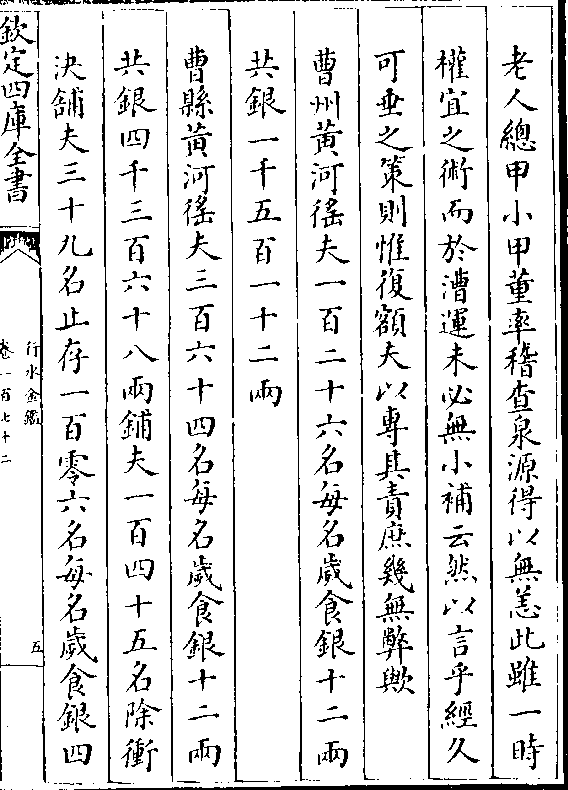 老人總甲小甲董率稽查泉源得以無恙此雖一時
權宜之術而於漕運未必無小補云然以言乎經久
可垂之策則惟復額夫以專其責庶幾無弊歟
曹州黄河徭夫一百二十六名每名歲食銀十二兩
共銀一千五百一十二兩
曹縣黄河徭夫三百六十四名每名歲食銀十二兩
共銀四千三百六十八兩鋪夫一百四十五名除衝
決舖夫三十九名止存一百零六名每名歲食銀四
欽定四庫全書
行水金鑑
卷一百七十二
五